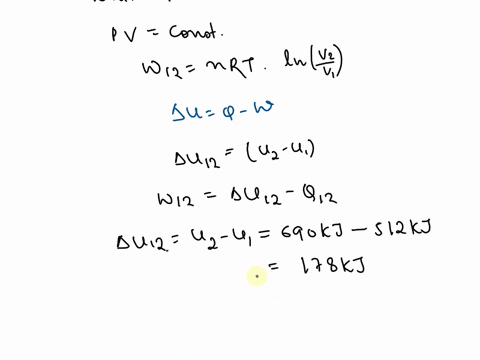 PV = Const.
W12 = nRT. ln(V2/V1)
ΔU = Q - W
ΔU12 = (U2 - U1)
W12 = ΔU12 - Q12
ΔU12 = U2 - U1 = 690KJ - 512KJ
= 178KJ